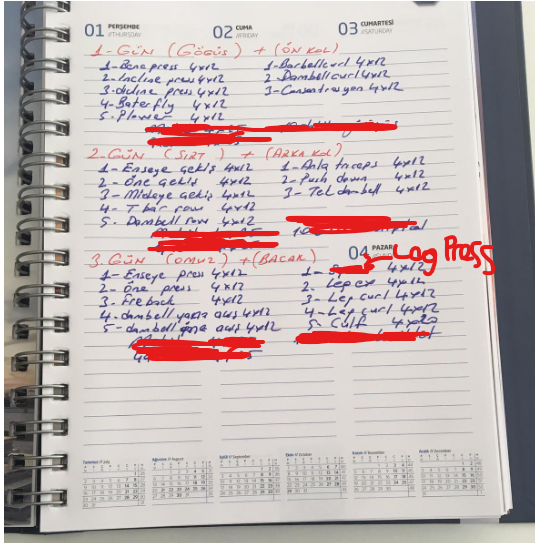 01 PERŞEMBE //THURSDAY
02 CUMA //FRIDAY
03 CUMARTESİ //SATURDAY
1-GÜN (GÖĞÜS) + (ÖN KOL)
1-Bench press 4x12
2-İncline press 4x12
3-dicline press 4x12
4-Baterfly 4x12
5. Plover 4x12
1-Barbell curl 4x12
2-Dambell curl 4x12
3-Consantrasyon 4x12
2.GÜN (SIRT) + (ARKA KOL)
1-Enseye çekiş 4x12
2-Öne çekiş 4x12
3-Mideye çekiş 4x12
4-T bar row 4x12
5. Dambell row 4x12
1-Alla triceps 4x12
2-Push down 4x12
3-Tek dambell 4x12
3.GÜN (OMUZ) + (BACAK)
1-Enseye press 4x12
2-Öne press 4x12
3-Fre back 4x12
4-dambell yana açış 4x12
5-dambell öne açış 4x12
04 PAZAR
Lag Press
1- 4x12
2. Leg ex 4x12
3-Leg curl 4x12
4-Leg curl 4x12
5. Calf 4x20
Temmuz // July
Ağustos // August
Eylül // September
Ekim // October
Kasım // November
Aralık // December